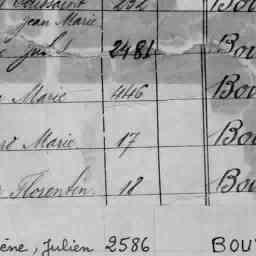 Toussaint 292 Bou
Jean Marie
Jul 2481 Bou
Marie 446 Bou
Marie 17 Bou
Florentin 18 Bou
ène, Julien 2586 BOU